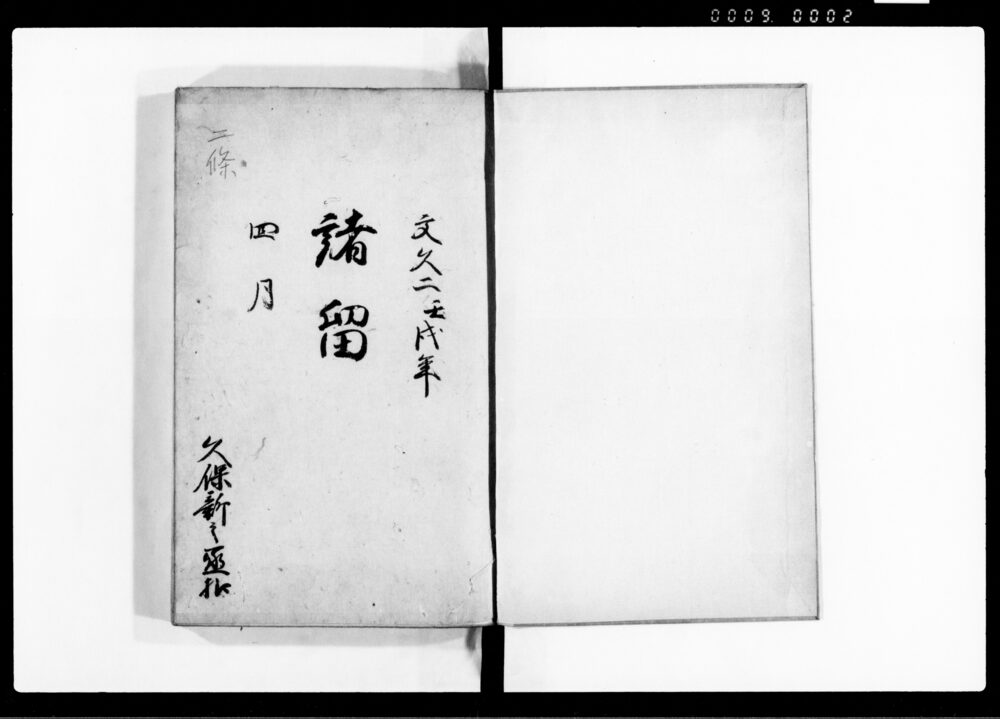 0009. 0002
文久二壬戌年
諸留
四月
二條
久保新之丞扣